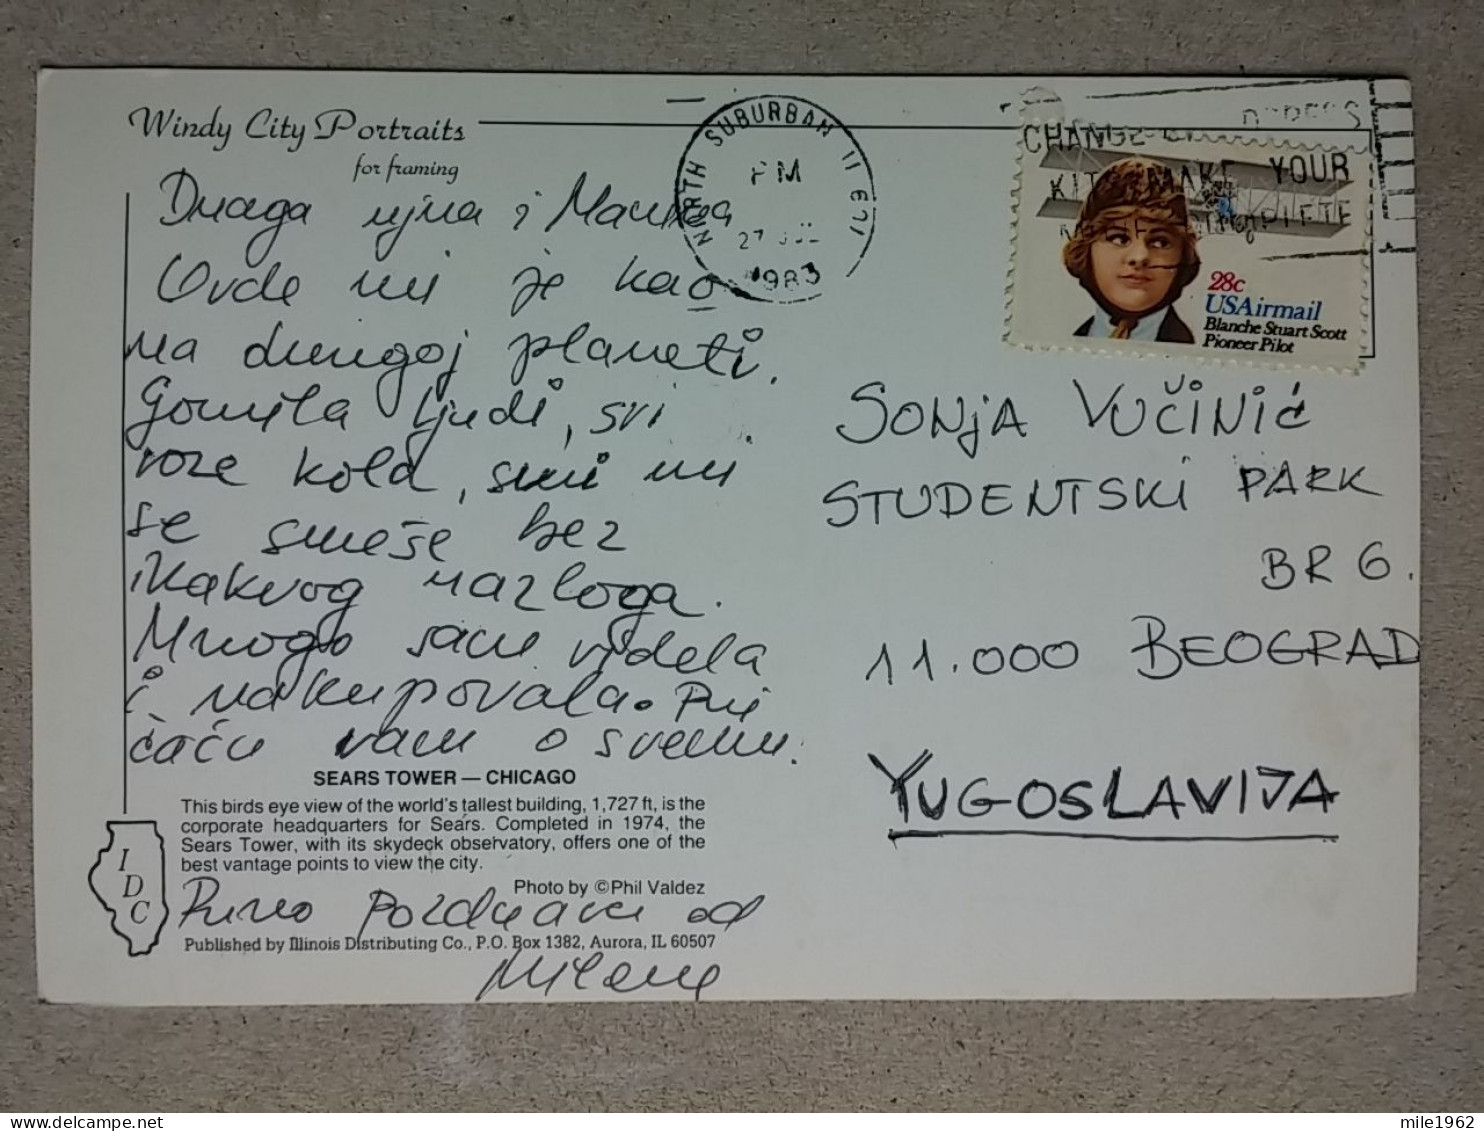 Windy City Portraits
for framing
Draga ujna i
Ovde mi je kao
na drugoj planeti.
Gomila ljudi, svi
voze kola, svi mi
se smeše bez
ikakvog razloga.
Mnogo sam videla
i nakupovala. Pri
čaću vam o svemu.
SEARS TOWER — CHICAGO
This birds eye view of the world's tallest building, 1,727 ft, is the
corporate headquarters for Sears. Completed in 1974, the
Sears Tower, with its skydeck observatory, offers one of the
best vantage points to view the city.
Photo by ©Phil Valdez
Puno pozdrava od
Published by Illinois Distributing Co., P.O. Box 1382, Aurora, IL 60507
Milene
IDC
NORTH SUBURBAN IL 607
PM
27
1983
CHANGE
YOUR
28c
USAirmail
Blanche Stuart Scott
Pioneer Pilot
SONJA VUČINIĆ
STUDENTSKI PARK
BR 6.
11.000 BEOGRAD
YUGOSLAVIJA
mile1962